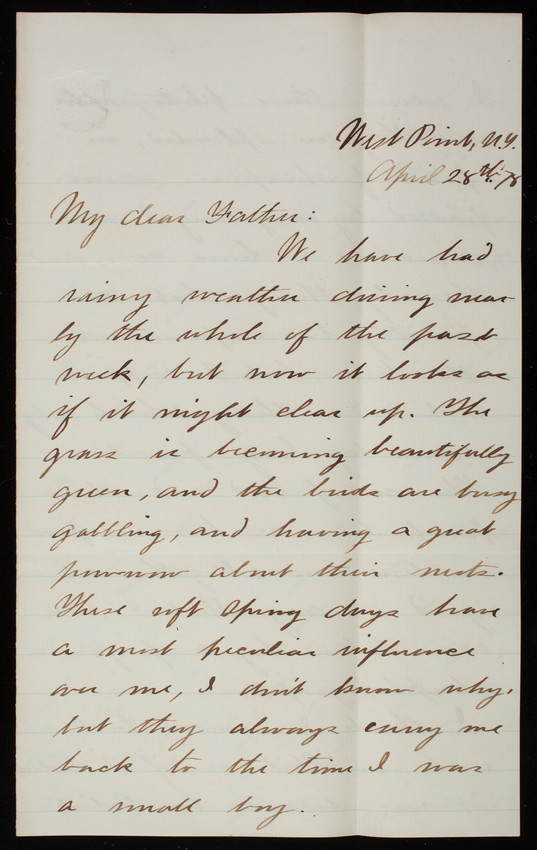 West Point, N.Y.
April 28th. 78
My dear Father:
We have had
rainy weather during near-
ly the whole of the past
week, but now it looks as
if it might clear up. The
grass is becoming beautifully
green, and the birds are busy
gabbling, and having a great
pow-wow about their nests.
These soft Spring days have
a most peculiar influence
over me, I don't know why.
but they always carry me
back to the time I was
a small boy.